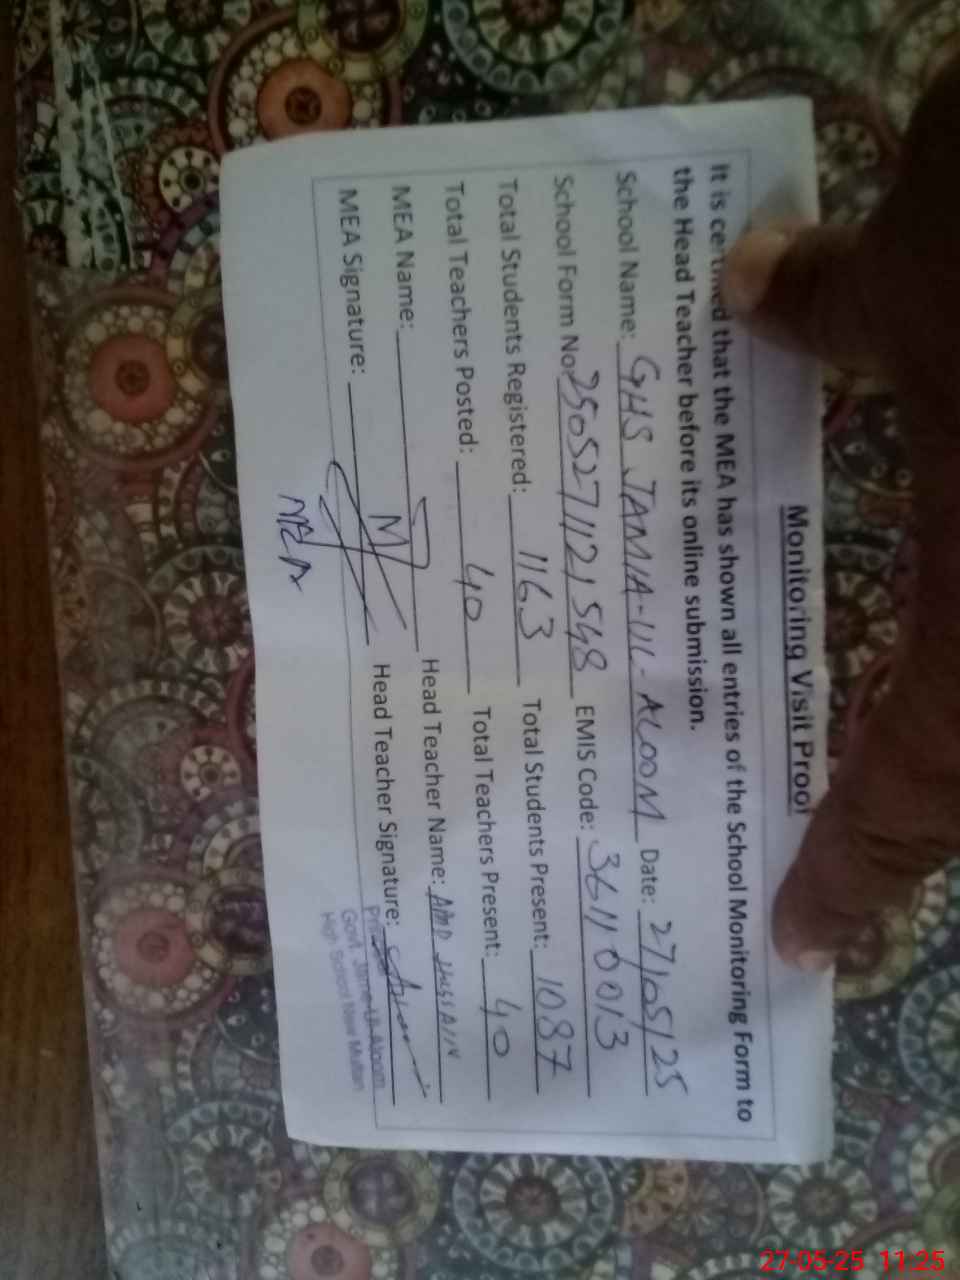 Monitoring Visit Proof
It is certified that the MEA has shown all entries of the School Monitoring Form to
the Head Teacher before its online submission.
School Name: GHS JAMIA-UL-ALOOM Date: 27/05/25
School Form No: 2505271121548 EMIS Code: 36110013
Total Students Registered: 1163 Total Students Present: 1087
Total Teachers Posted: 40 Total Teachers Present: 40
MEA Name: Head Teacher Name: AMD HUSSAIN
MEA Signature: Head Teacher Signature:
MEA
Govt. Jamia-Ul-Aloom
High School New Multan
27-05-25 11:25